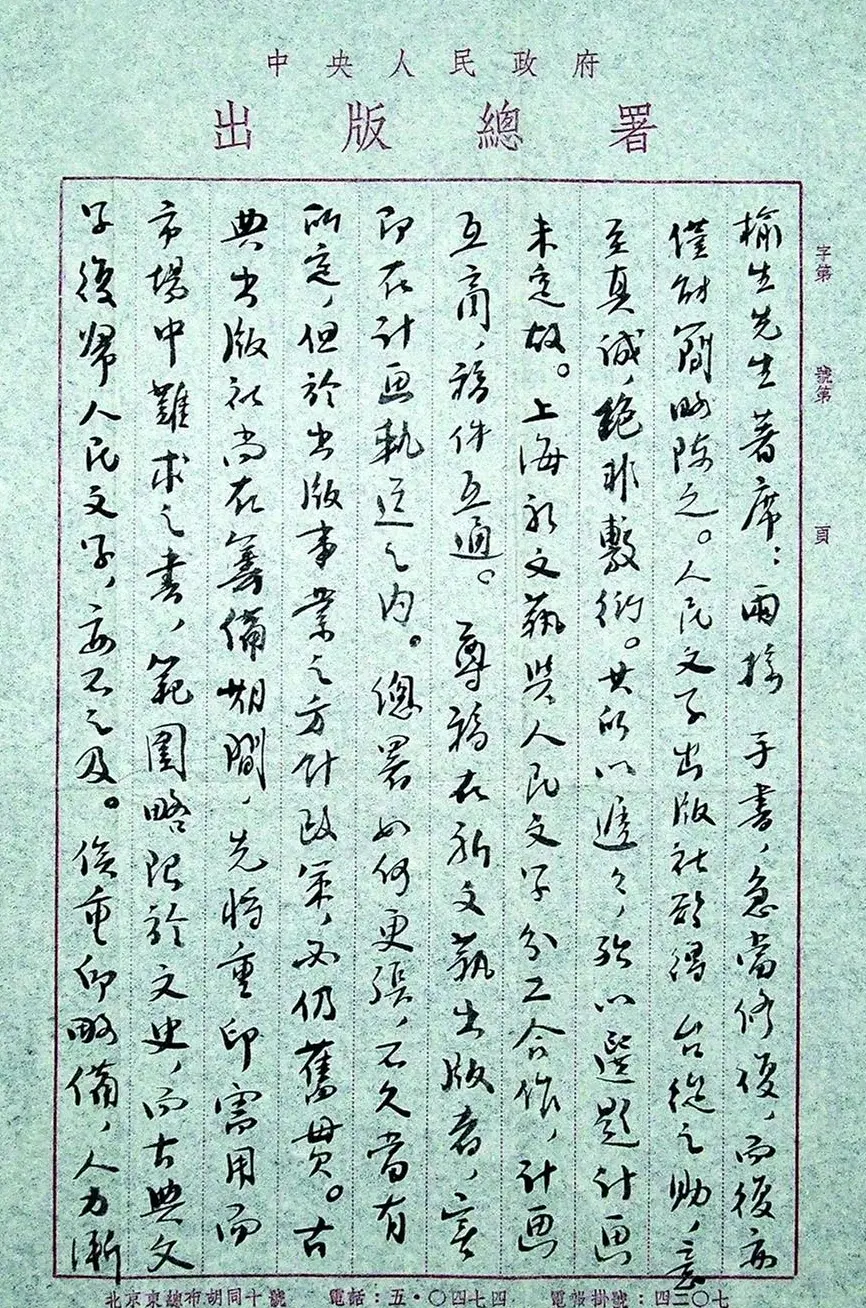 中央人民政府
出版總署
字第 號第 頁
榆生先生著席：兩接 手書，急當修復，而復亦
僅能簡略陳之。人民文學出版社欲得 台從之助，意
至真誠，絕非敷衍。其所以遲遲，殆以選題計畫
未定故。上海新文藝與人民文學分工合作，計畫
互商，稿件互通。 尊稿在新文藝出版者，實
即在計畫軌道之內。總署如何更張，不久當有
所定，但於出版事業之方針政策，必仍舊貫。古
典出版社尚在籌備期間，先將重印需用而
市場中難求之書，範圍略限於文史，而古典文
學復歸人民文學，不之及。俟重印略備，人力漸
北京東總布胡同十號 電話：五·〇四七四 電報掛號：四二〇七